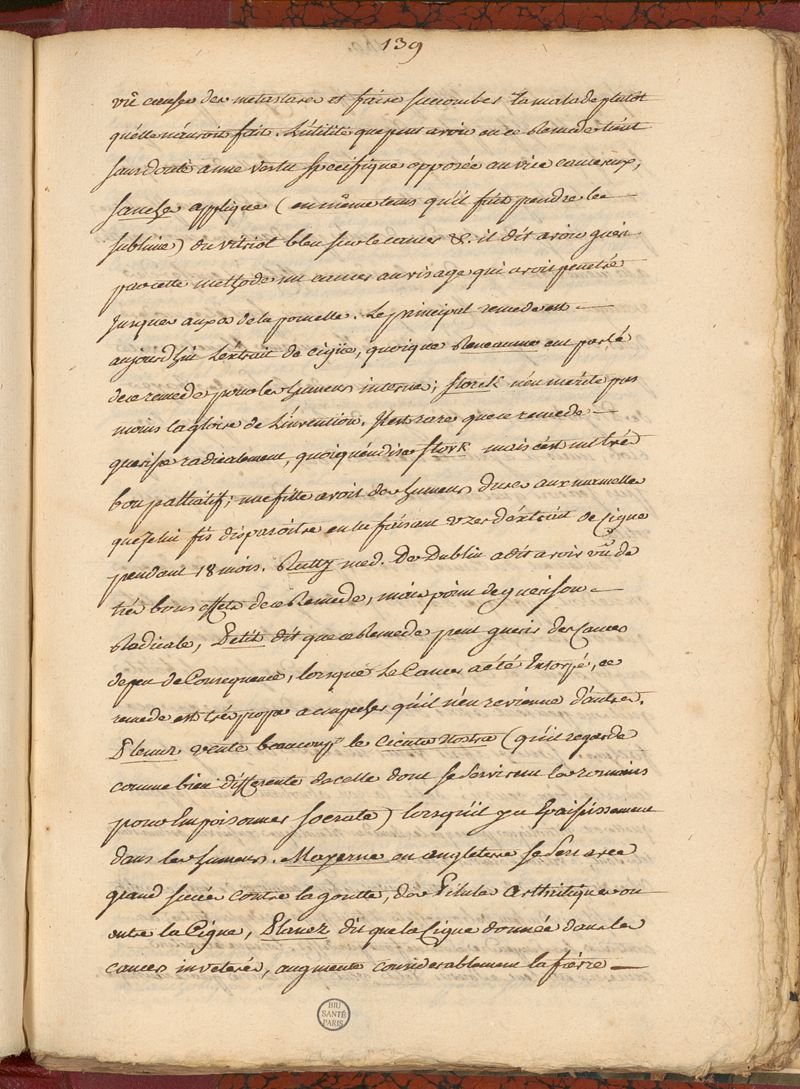 139
vû causer des metastases et faire succomber la malade plutot
qu'elle n'auroit fait. L'utilité que peut avoir eu ce Remede tient
sans doute a une vertu specifique opposée au vice cancereux,
sanchz applique (en même tems qu'il fait prendre le
sublimé) du vitriol bleu sur le cancer &. il dit avoir gueri
par cette methode un cancer au visage qui avoit penetré
jusques aux os de la pomette. Le principal remede est
aujourdhui L'extrait de cigüe, quoique Reneaume eut parlé
de ce remede pour les humeurs internes; storck n'en merite pas
moins la gloire de L'invention. Il est rare que ce remede
guerisse radicalement, quoiqu'en dise storK mais c'est un tres
bon palliatif; une fille avoit des humeurs dures aux mammelles
que je lui fis disparoitre en lui faisant uzer d'extrait de Cigue
pendant 18 mois. Rutty med. De Dublin a dit avoir vû de
trés bons effets de ce Remede, mais point de guerison
Radicale, Petit dit que ce Remede peut guerir des Cancers
de peu de Consequence, lorsque Le Cancer a été Extirpé, ce
remede est tres propre a empecher qu'il n'en revienne d'autres.
Plenez vente beaucoup le Cicuta Nostra (qu'il regarde
comme bien differente de celle dont se servirent les romains
pour Empoisonner socrate) lorsqu'il y a Epaississement
dans les humeurs. Mayerne en angleterre se sert avec
grand succés contre la goutte, des Pilules Arthritiques ou
entre la Cigue, Plenez dit que la Cigue donnée dans les
cancers inveterés, augmente considerablement la fiévre
BIU
SANTÉ
PARIS